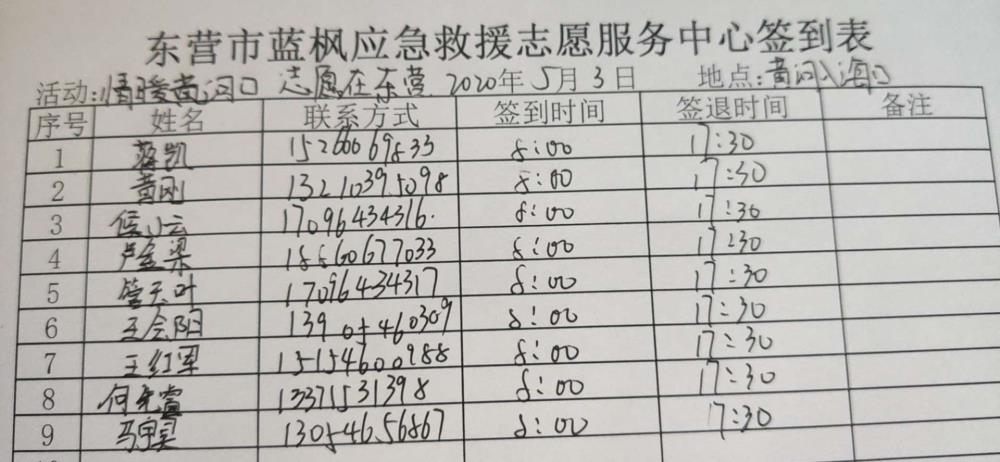 东营市蓝枫应急救援志愿服务中心签到表
活动:情暖黄河口 志愿在东营 2020年5月3日 地点:黄河入海口
序号 姓名 联系方式 签到时间 签退时间 备注
1 蒋凯 15266069833 8:00 17:30
2 黄刚 13210395098 8:00 17:30
3 侯小云 17096434316. 8:00 17:30
4 卢金梁 18860677033 8:00 17:30
5 管天叶 17096434317 8:00 17:30
6 王会阳 139 05460309 8:00 17:30
7 王红军 15154600988 8:00 17:30
8 13371531398 8:00 17:30
9 13054656867 8:00 17:30